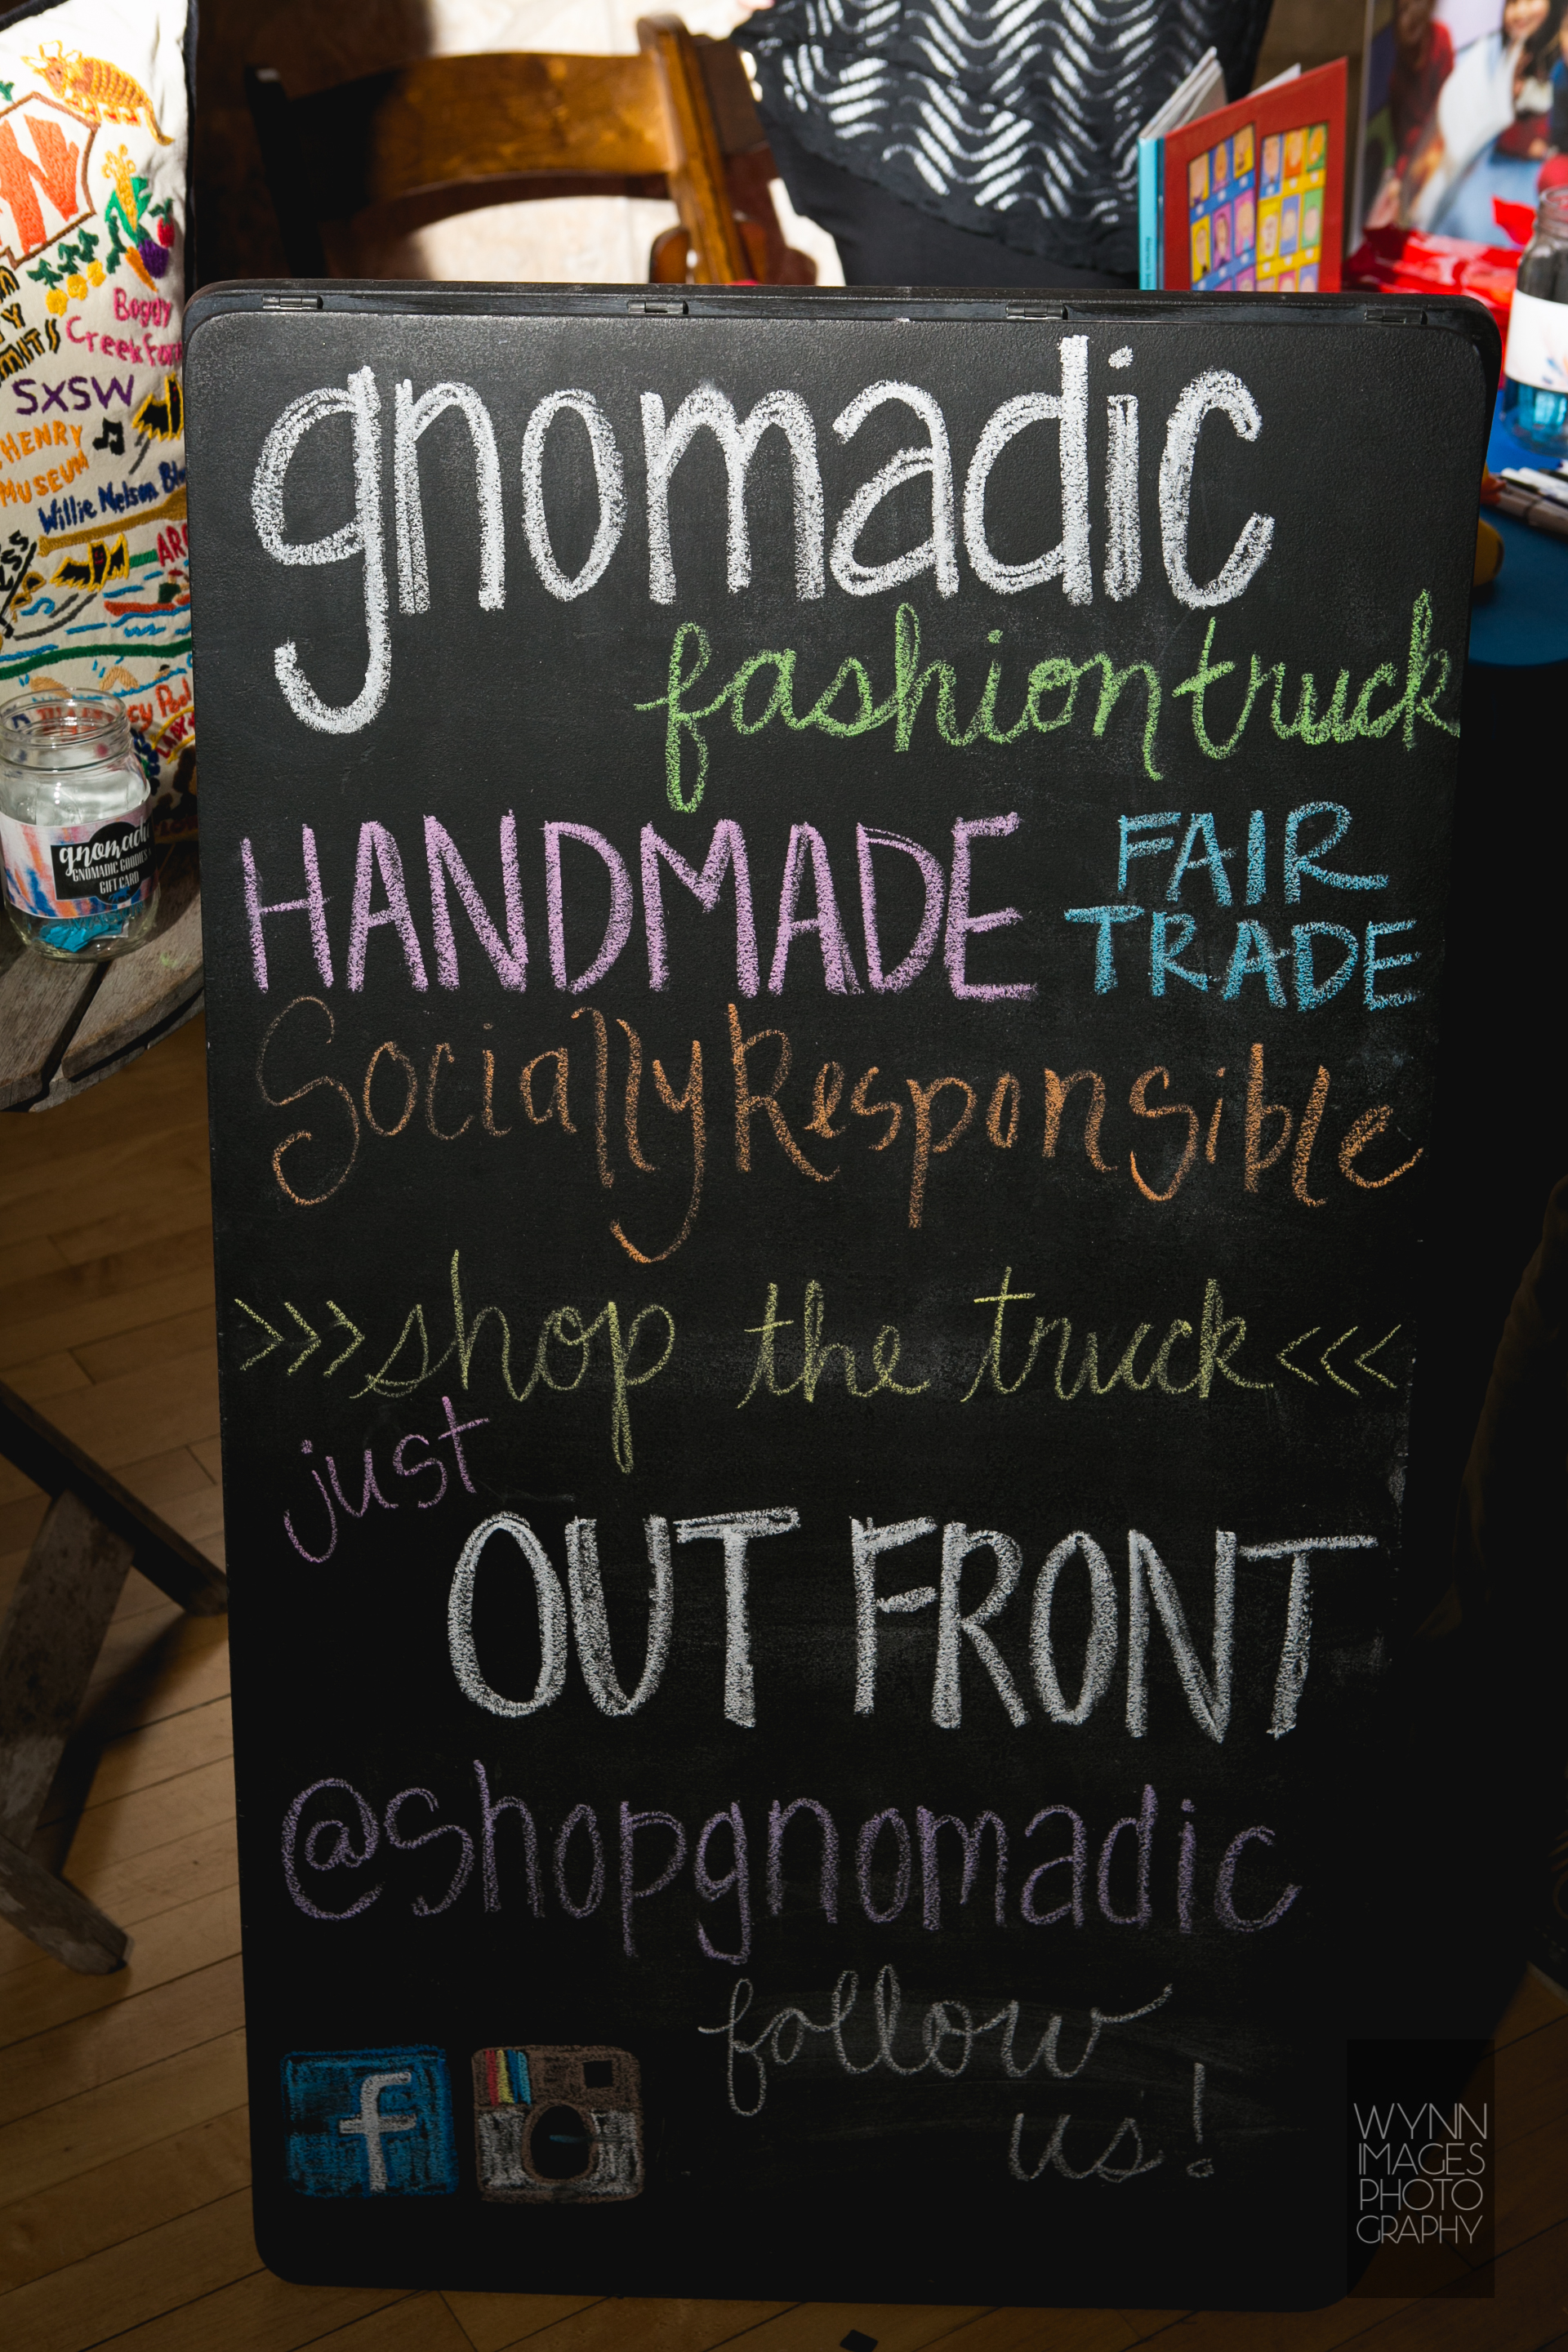 gnomadic
fashion truck
HANDMADE
FAIR
TRADE
Socially Responsible
>>> shop the truck <<<
just
OUT FRONT
@shopgnomadic
follow
us!
f
SXSW
HENRY
MUSEUM
Willie Nelson
Creek
gnomadic
GNOMADIC GOODIES
GIFT CARD
WYNN
IMAGES
PHOTO
GRAPHY